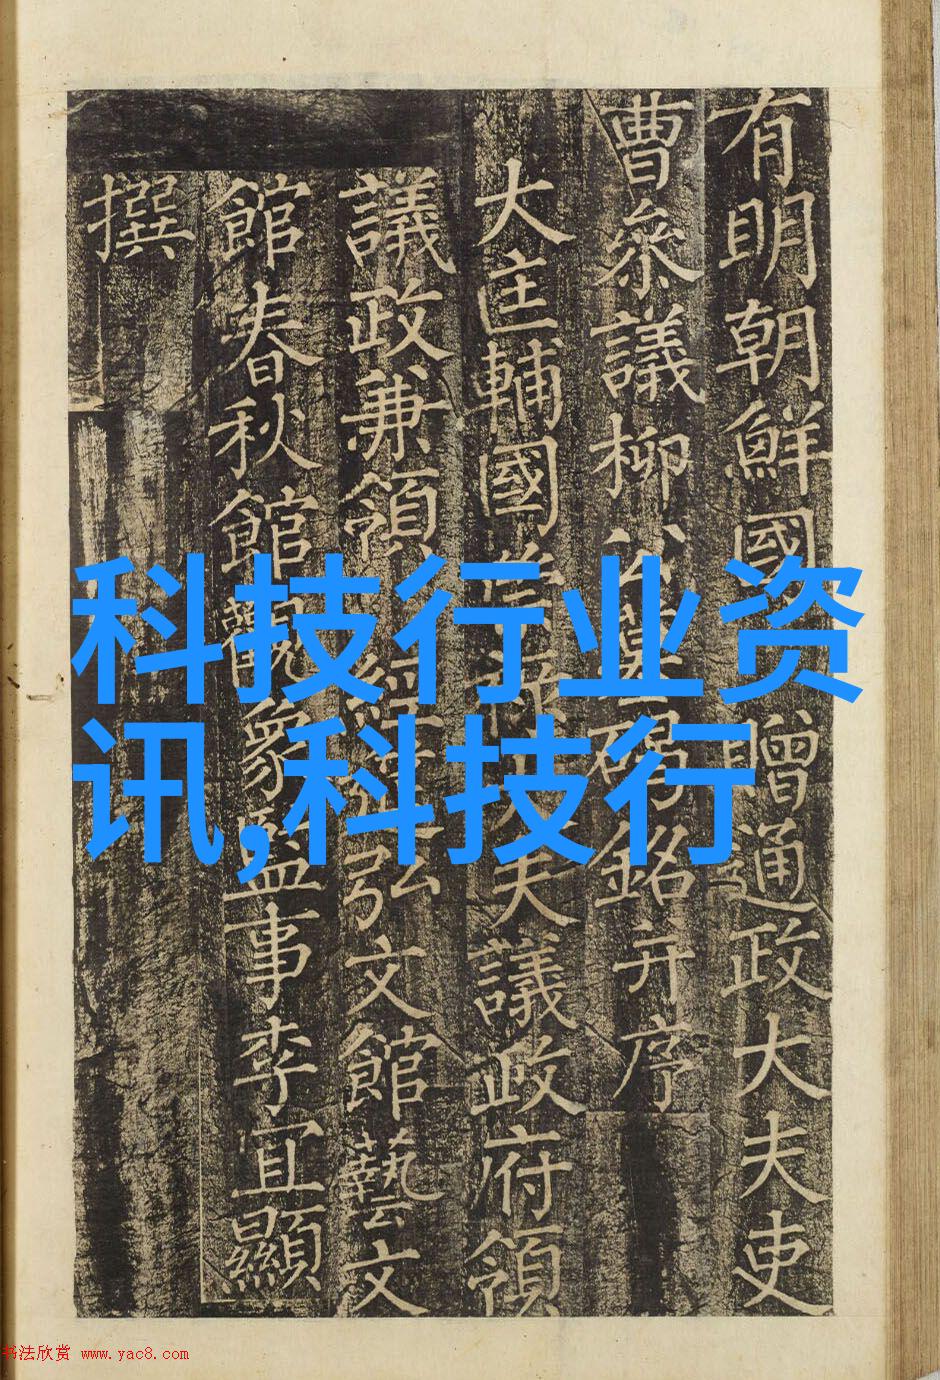 有明朝鮮國贈通政大夫吏
曹叅議柳公墓碣銘并序
大匡輔國崇祿大夫議政府領
議政兼領經筵弘文館藝文
館春秋館觀象監事李宜顯
撰
科技行业资
讯,科技行
书法欣赏 www.yac8.com